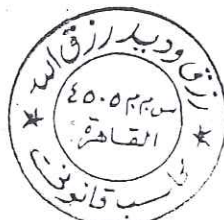 رزق وديد رزق الله
س.م.م ٤٥٠٥
القاهرة
محاسب قانونى